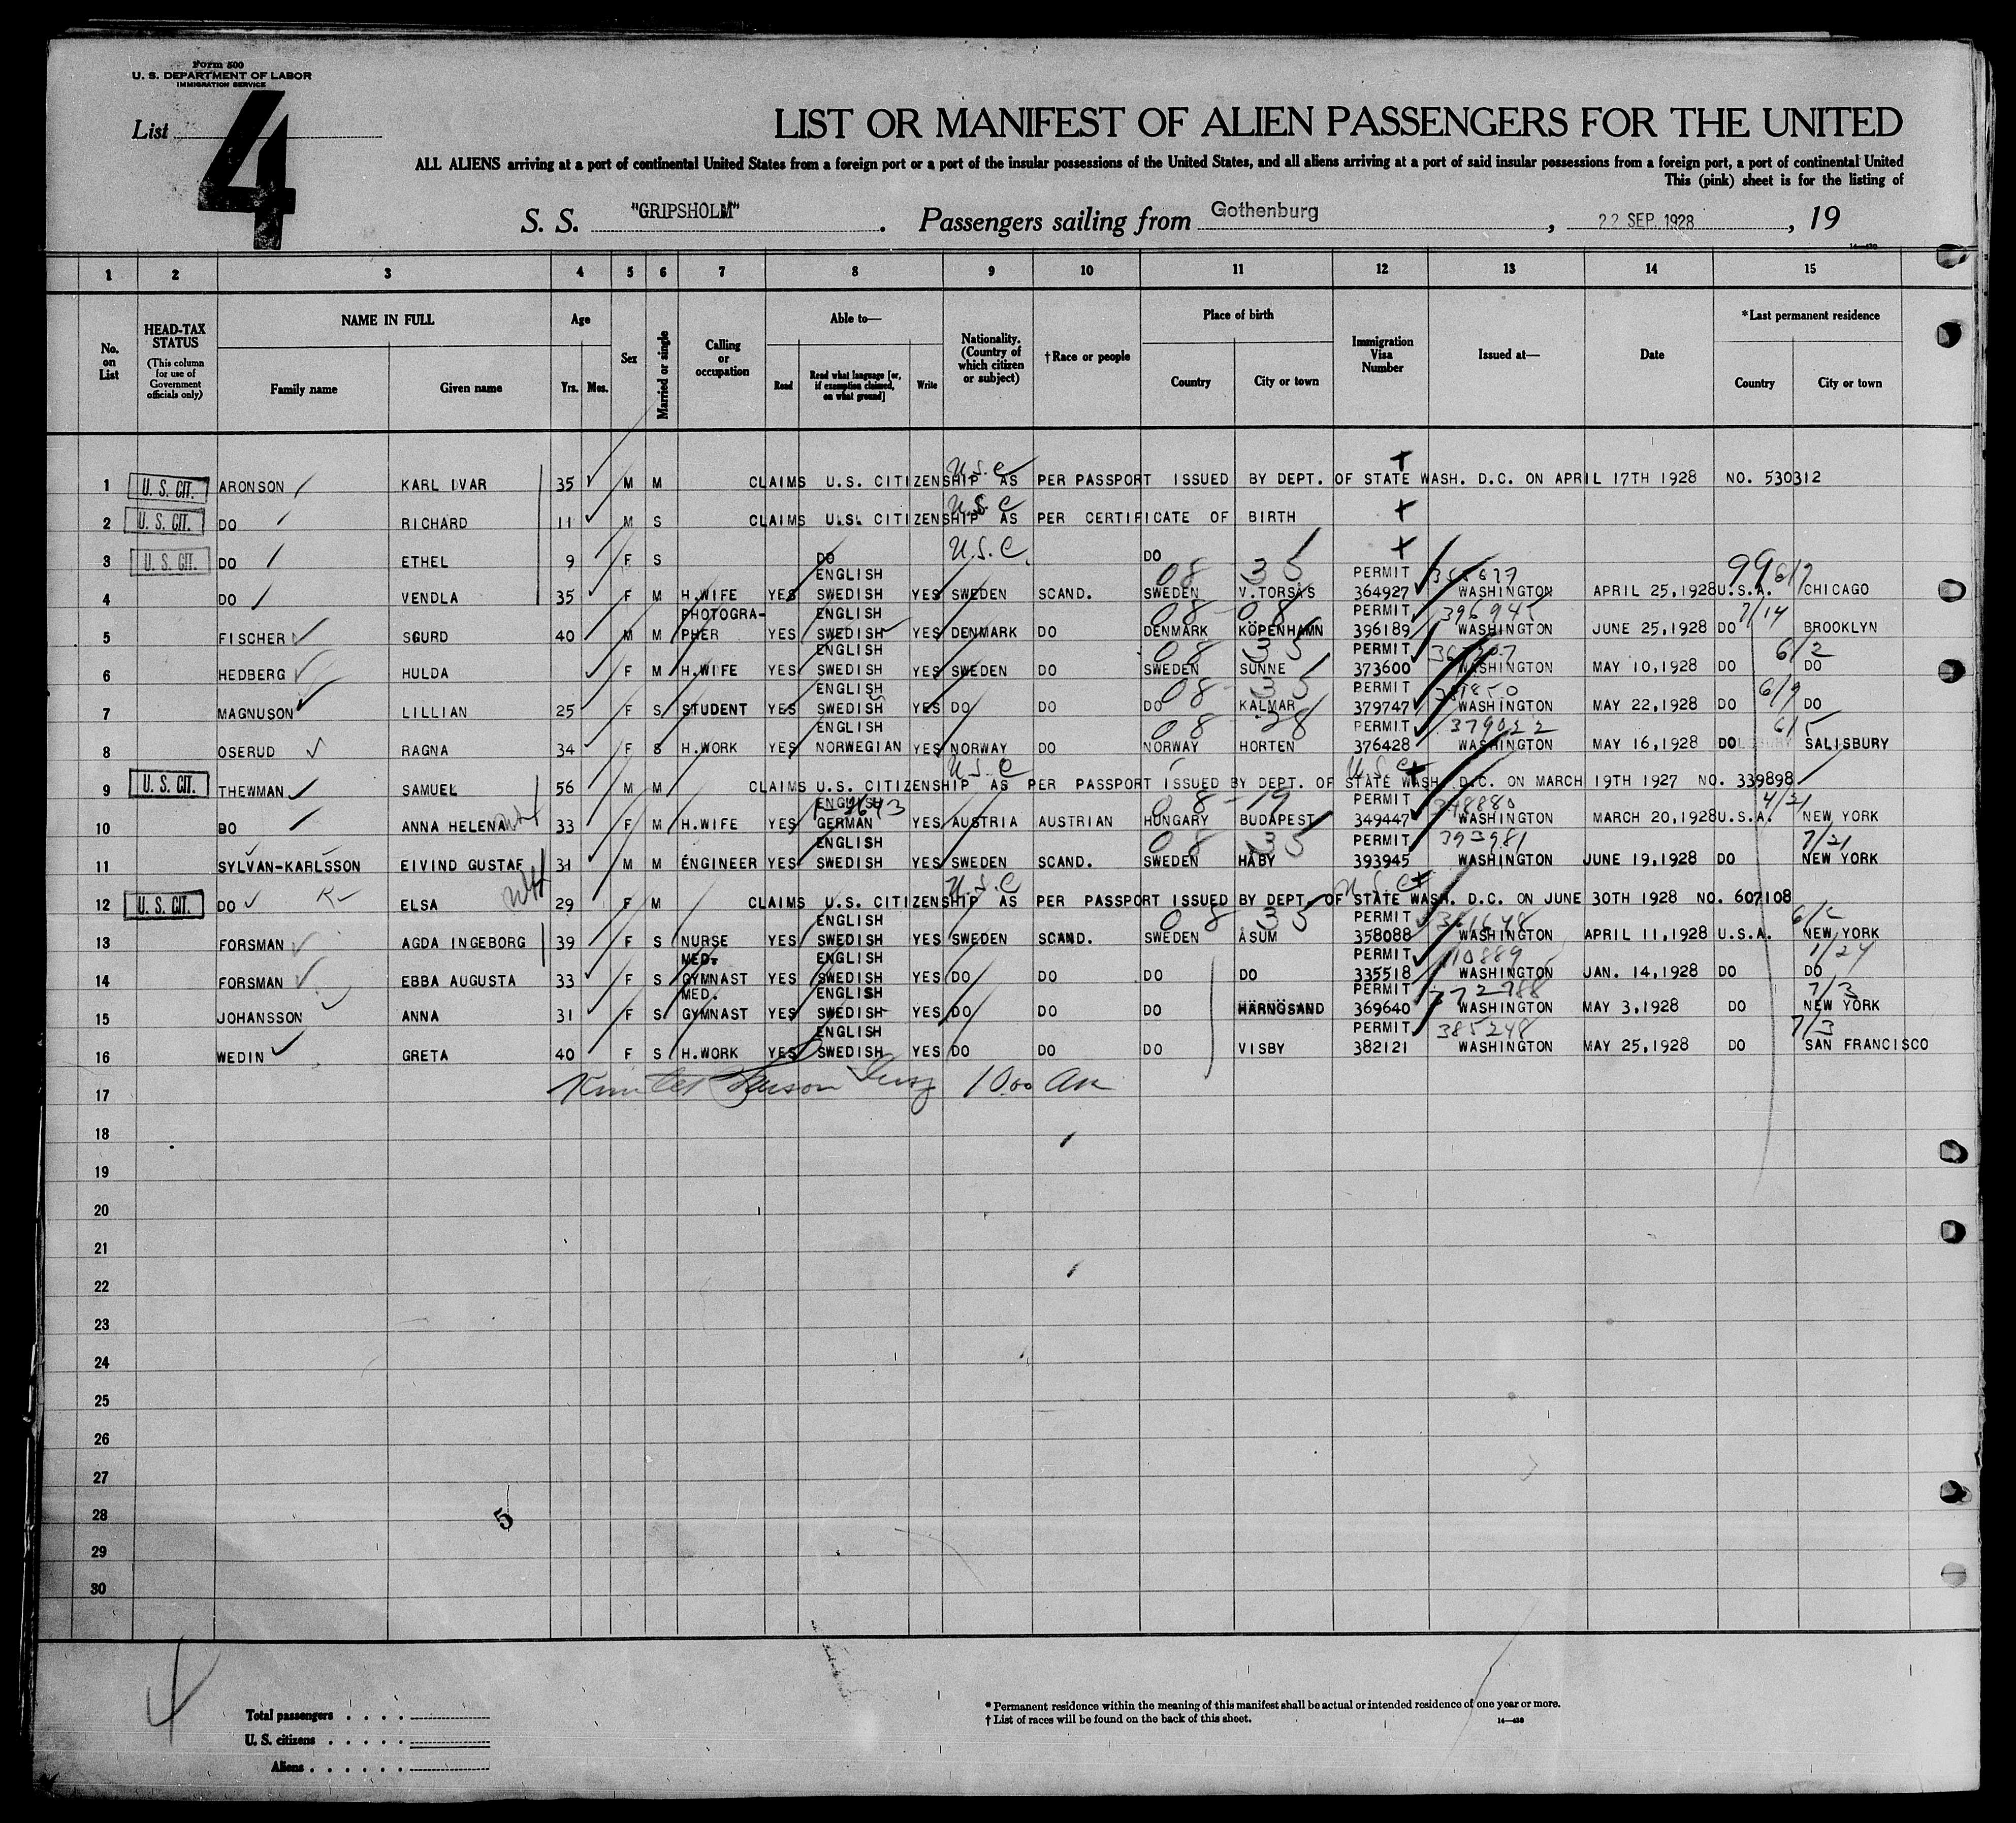 Form 500
U. S. DEPARTMENT OF LABOR
IMMIGRATION SERVICE
List
4
LIST OR MANIFEST OF ALIEN PASSENGERS FOR THE UNITED
ALL ALIENS arriving at a port of continental United States from a foreign port or a port of the insular possessions of the United States, and all aliens arriving at a port of said insular possessions from a foreign port, a port of continental United
This (pink) sheet is for the listing of
S. S. "GRIPSHOLM". Passengers sailing from Gothenburg, 22 SEP. 1928, 19
14—430
1 2 3 4 5 6 7 8 9 10 11 12 13 14 15
No. on List
HEAD-TAX STATUS
(This column for use of Government officials only)
NAME IN FULL
Family name Given name
Age
Yrs. Mos.
Sex
Married or single
Calling or occupation
Able to—
Read Read what language [or, if exemption claimed, on what ground] Write
Nationality. (Country of which citizen or subject)
†Race or people
Place of birth
Country City or town
Immigration Visa Number
Issued at—
Date
*Last permanent residence
Country City or town
U.S.C
1 U. S. CIT. ARONSON KARL IVAR 35 M M CLAIMS U.S. CITIZENSHIP AS PER PASSPORT ISSUED BY DEPT. OF STATE WASH. D.C. ON APRIL 17TH 1928 NO. 530312
U.S.C
2 U. S. CIT. DO RICHARD 11 M S CLAIMS U.S. CITIZENSHIP AS PER CERTIFICATE OF BIRTH
3 U. S. CIT. DO ETHEL 9 F S DO U.S.C. DO
ENGLISH 08 35 PERMIT 99 6/7
4 DO VENDLA 35 F M H.WIFE YES SWEDISH YES SWEDEN SCAND. SWEDEN V.TORSÅS 364927 WASHINGTON APRIL 25,1928 U.S.A. CHICAGO
PHOTOGRA- ENGLISH 08 08 PERMIT 396945 7/14
5 FISCHER SGURD 40 M M PHER YES SWEDISH YES DENMARK DO DENMARK KÖPENHAMN 396189 WASHINGTON JUNE 25,1928 DO BROOKLYN
ENGLISH 08 35 PERMIT 6/2
6 HEDBERG HULDA F M H.WIFE YES SWEDISH YES SWEDEN DO SWEDEN SUNNE 373600 WASHINGTON MAY 10,1928 DO DO
ENGLISH 08 35 PERMIT 381850 6/9
7 MAGNUSON LILLIAN 25 F S STUDENT YES SWEDISH YES DO DO DO KALMAR 379747 WASHINGTON MAY 22,1928 DO DO
ENGLISH 08 28 PERMIT 379022 6/5
8 OSERUD RAGNA 34 F S H.WORK YES NORWEGIAN YES NORWAY DO NORWAY HORTEN 376428 WASHINGTON MAY 16,1928 DO SALISBURY
U.S.C U.S.C
9 U. S. CIT. THEWMAN SAMUEL 56 M M CLAIMS U.S. CITIZENSHIP AS PER PASSPORT ISSUED BY DEPT. OF STATE WASH. D.C. ON MARCH 19TH 1927 NO. 339898
ENGLISH 08 19 PERMIT 348880 4/21
10 DO ANNA HELENA 33 F M H.WIFE YES GERMAN YES AUSTRIA AUSTRIAN HUNGARY BUDAPEST 349447 WASHINGTON MARCH 20,1928 U.S.A. NEW YORK
ENGLISH 08 35 PERMIT 393981 7/21
11 SYLVAN-KARLSSON EIVIND GUSTAF 31 M M ENGINEER YES SWEDISH YES SWEDEN SCAND. SWEDEN HÅBY 393945 WASHINGTON JUNE 19,1928 DO NEW YORK
U.S.C U.S.C
12 U. S. CIT. DO ELSA 29 F M CLAIMS U.S. CITIZENSHIP AS PER PASSPORT ISSUED BY DEPT. OF STATE WASH. D.C. ON JUNE 30TH 1928 NO. 607108
ENGLISH 08 35 PERMIT 361648
13 FORSMAN AGDA INGEBORG 39 F S NURSE YES SWEDISH YES SWEDEN SCAND. SWEDEN ÅSUM 358088 WASHINGTON APRIL 11,1928 U.S.A. NEW YORK
MED. ENGLISH PERMIT 1/24
14 FORSMAN EBBA AUGUSTA 33 F S GYMNAST YES SWEDISH YES DO DO DO DO 335518 WASHINGTON JAN. 14,1928 DO DO
MED. ENGLISH PERMIT 372788 7/3
15 JOHANSSON ANNA 31 F S GYMNAST YES SWEDISH YES DO DO DO HÄRNÖSAND 369640 WASHINGTON MAY 3,1928 DO NEW YORK
ENGLISH PERMIT 385248 7/3
16 WEDIN GRETA 40 F S H.WORK YES SWEDISH YES DO DO DO VISBY 382121 WASHINGTON MAY 25,1928 DO SAN FRANCISCO
17 10.00 Am
18
19
20
21
22
23
24
25
26
27
28
5
29
30
Total passengers
U. S. citizens
Aliens
* Permanent residence within the meaning of this manifest shall be actual or intended residence of one year or more.
† List of races will be found on the back of this sheet.
14—430